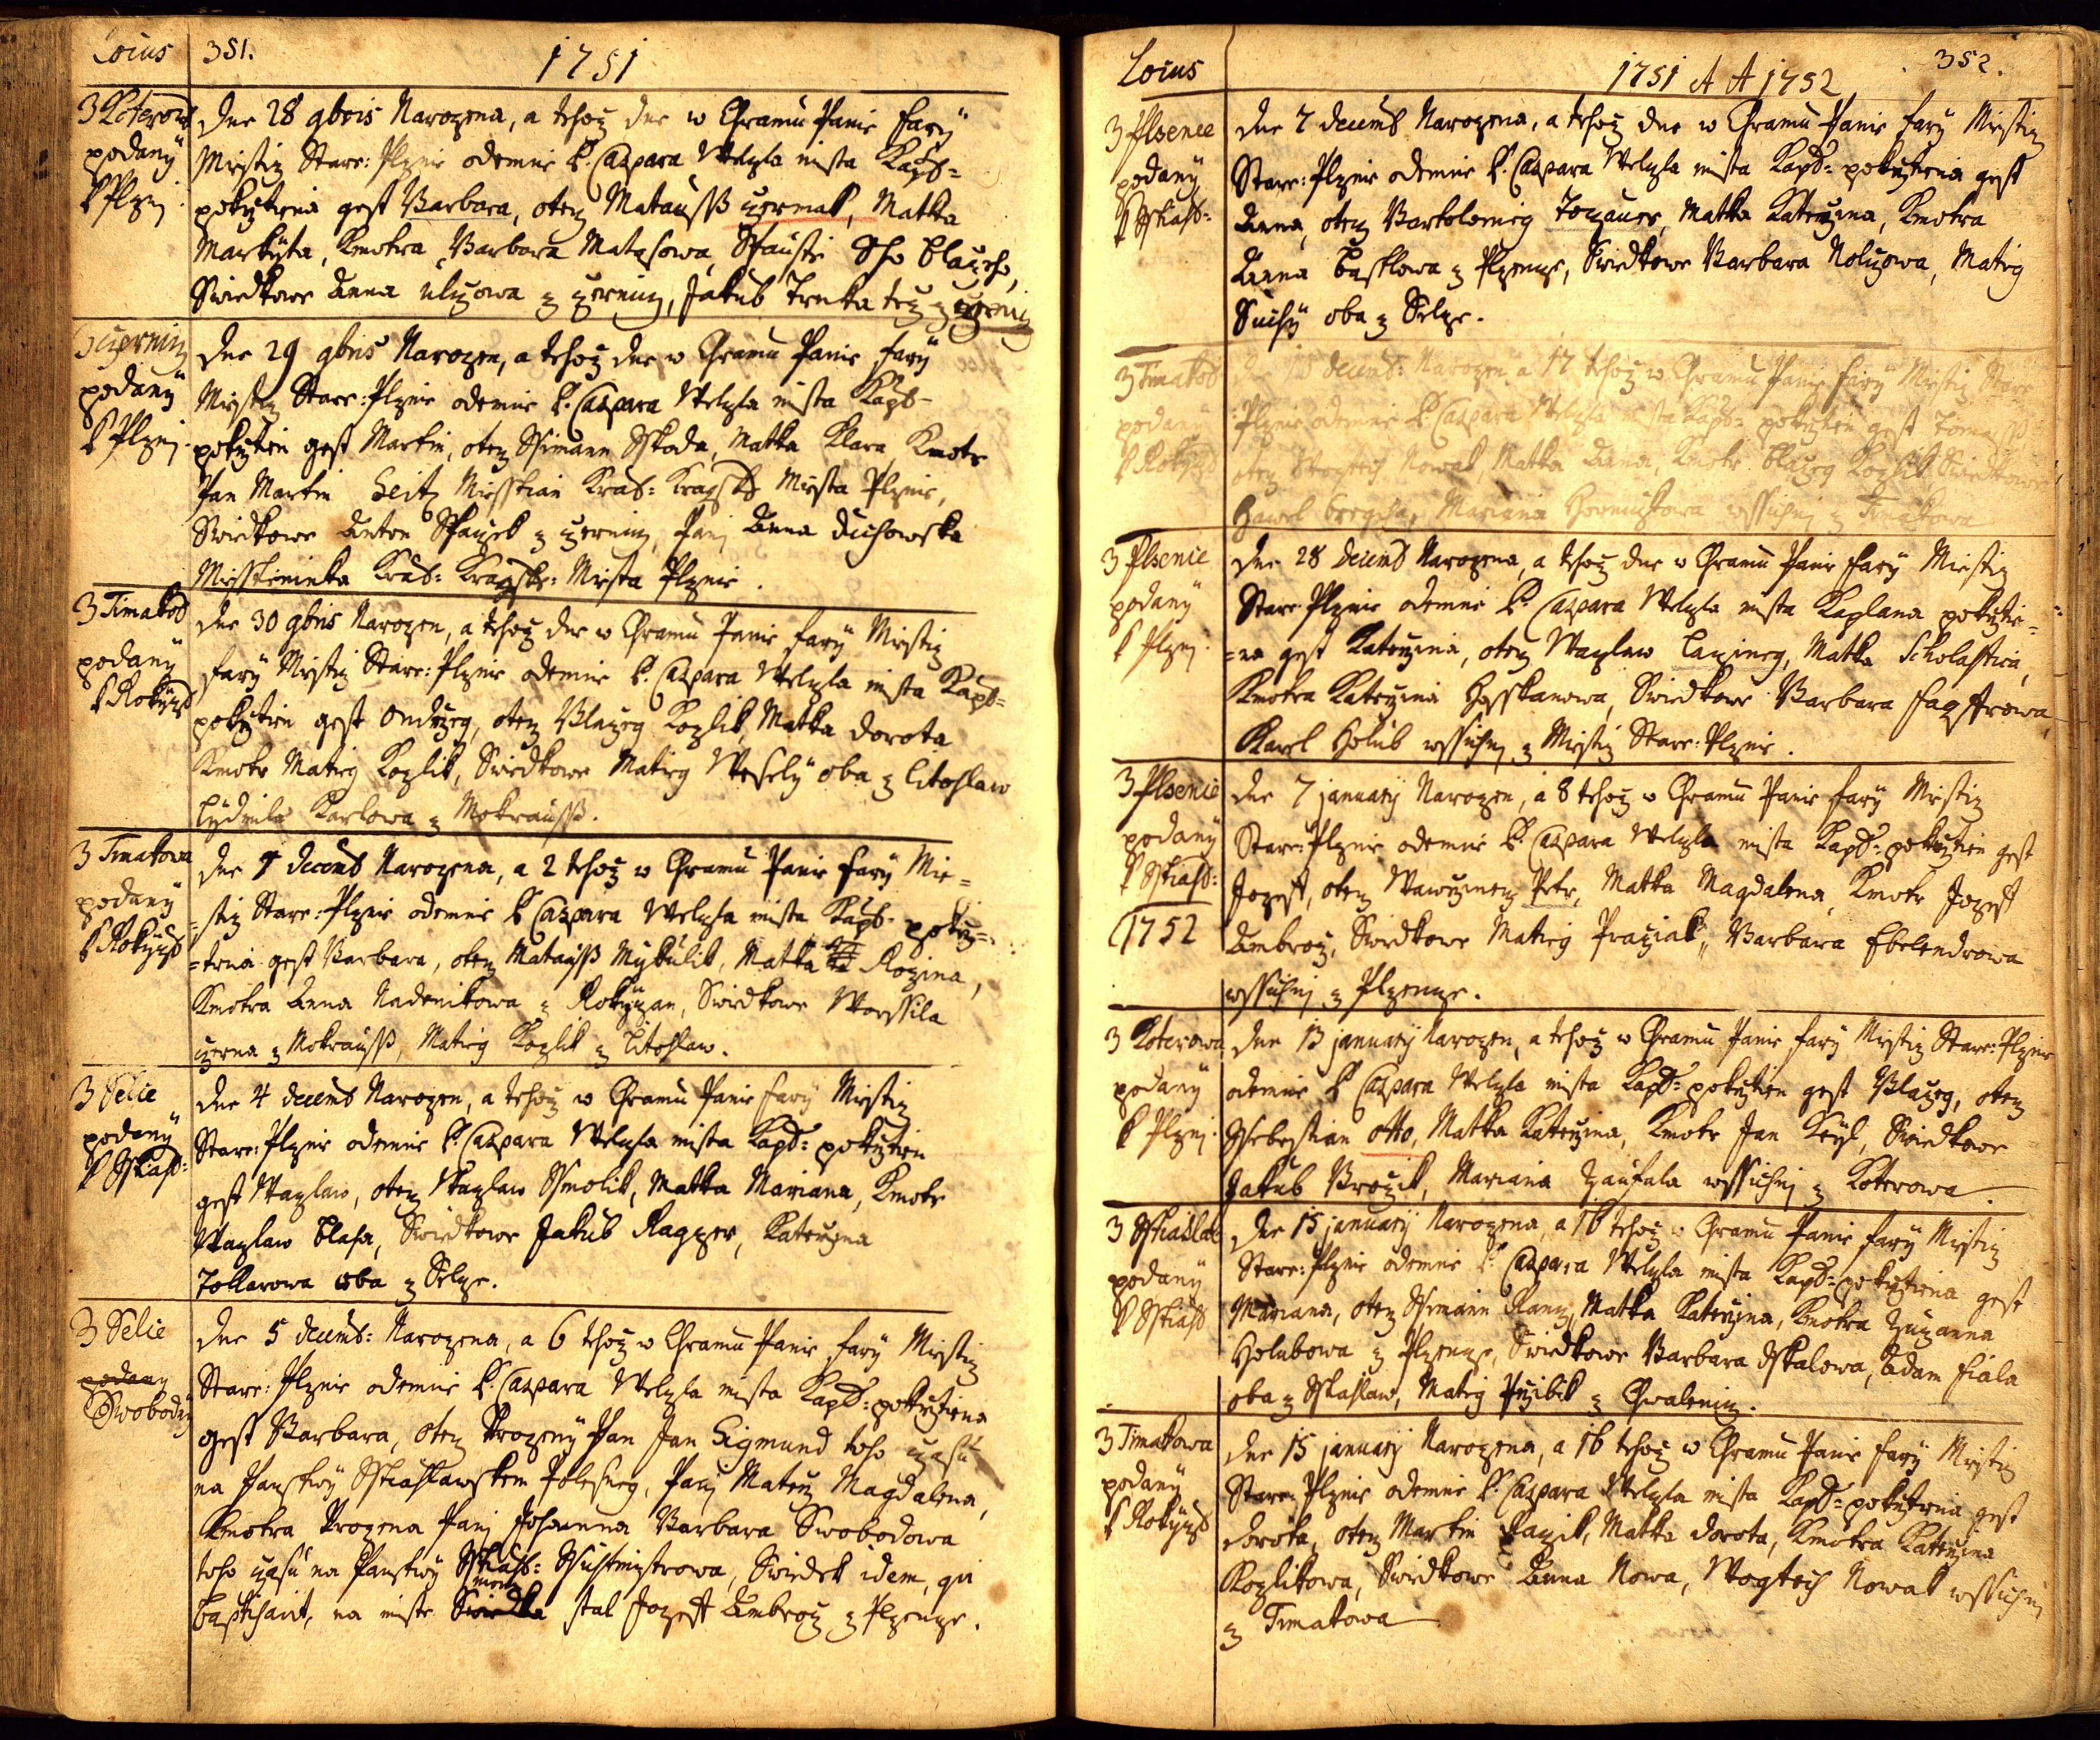 Locus 351. 1751
z Koterow
podaný
k Plzni
Dne 28 9bris Narozena, a tehoz dne w Chramu Panie Fary
Miestiz Stare: Plznie odemnie P. Caspara Welzla mista Kapl=
pokrztiena gest Barbara, otecz Matauss czermak, Matka
Markyta, Kmotra Barbara
Swiedkowe Anna z czernicz, Jakub Trnka tez z czernicz
z czernicz
podaný
k Plzni
Dne 29 9bris Narozen, a tehoz dne w Chramu Panie Fary
Miestiz Stare: Plznie odemnie P. Caspara Welzla mista Kapl=
pokrztien gest Martin, otecz Ssimann Sskoda, Matka Klara Kmotr
Pan Martin Seitz Miesstian Kral: Kragsk: Miesta Plznie,
Swiedkowe Anton z czernicz, Pani Anna Duchowska
Miesstieninka Kral: Kragsk: Miesta Plznie.
z Timakow
podaný
k Rokycz
Dne 30 9bris Narozen, a tehoz dne w Chramu Panie Fary Miestiz
Fary Miestiz Stare: Plznie odemnie P. Caspara Welzla mista Kapl=
pokrztien gest Ondrzeg, otecz Blazeg Kozlik, Matka Dorota
Kmotr Matieg Kozlik, Swiedkowe Matieg Wesely oba z Litohlaw
Lydmila Karlowa z Mokrauss.
z Timakowa
podaný
k Rokycz
Dne 1 Decemb Narozena, a 2 tehoz w Chramu Panie Fary Mie=
=stiz Stare: Plznie odemnie P. Caspara Welzla mista Kapl= pokrz=
=tiena gest Barbara, otecz Matauss Mykulik, Matka Rozina,
Kmotra Anna Nadenikowa z Rokyczan, Swiedkowe Worssila
czerna z Mokrauss, Matieg Kozlik z Litohlaw.
z Selce
podaný
k Sstiahl:
Dne 4 Decemb Narozen, a tehoz w Chramu Panie Fary Miestiz
Stare: Plznie odemnie P. Caspara Welzla mista Kapl= pokrztien
gest Waczlaw, otecz Waczlaw Ssmolik, Matka Mariana, Kmotr
Waczlaw Blaha, Swiedkowe Jakub Ragzer, Katerzina
Tollarowa oba z Selcze.
z Selce
podany
Swobodny
Dne 5 Decemb: Narozena, a 6 tehoz w Chramu Panie Fary Miestiz
Stare: Plznie odemnie P. Caspara Welzla mista Kapl= pokrztiena
gest Barbara, otecz Urozeny Pan Jan Sigmund toho czasu
na Panstwy Sstiahlawskem Polesny, Pani Matka Magdalena,
Kmotra Urozena Pani Johanna Barbara Swobodowa
toho czasu na Panstwy Sstiahl: Ssichtmistrowa, Swiedek idem, qui
baptisavit, na miste Swiedka stal Jozeff Ambroz z Plzencze.
Locus 1751 A A 1752 352.
z Plsence
podaný
k Sstiahl=
Dne 7 Decemb Narozena, a tehoz dne w Chramu Panie Fary Miestiz
Stare: Plznie odemnie P. Caspara Welzla mista Kapl= pokrztiena gest
Anna, otecz Bartolomieg Tonauer, Matka Katerzina, Kmotra
Anna Basslowa z Plzencze, Swiedkowe Barbara Nolczowa, Matieg
Suchy oba z Selcze.
z Timakow
podaný
k Rokycz
Dne Decemb: Narozen a 17 tehoz w Chramu Panie Fary Miestiz Stare
Plznie odemnie P. Caspara Welzla mista Kapl= pokrztien gest Tomass
otecz Wogtiech Nowak, Matka Anna, Kmotr Blazeg Kozlik, Swiedkowe
Hawel Mariana wssichni z Timakowa
z Plsence
podaný
k Plzni.
Dne 28 Decemb Narozena, a tehoz dne w Chramu Panie Fary Miestiz
Stare Plznie odemnie P. Caspara Welzla mista Kaplana pokrztie=
=na gest Katerzina, otecz Waczlaw Lazineg, Matka Scholastica,
Kmotra Katerzina Hosskanowa, Swiedkowe Barbara
Karel Holub wssichni z Miestiz Stare: Plznie.
z Plsence
podaný
k Sstiahl:
1752
Dne 7 january Narozen, a 8 tehoz w Chramu Panie Fary Miestiz
Stare: Plznie odemnie P. Caspara Welzla mista Kapl= pokrztien gest
Jozeff, otecz Wawrzinecz Petr, Matka Magdalena, Kmotr Jozeff
Ambroz, Swiedkowe Matieg Praziak, Barbara Ebelendrowa
wssichni z Plzencze.
z Koterowa
podaný
k Plzni.
Dne 13 january Narozen, a tehoz w Chramu Panie Fary Miestiz Stare: Plznie
odemnie P. Caspara Welzla mista Kapl= pokrztien gest Blazeg, otecz
Ssebestian Otto, Matka Katerzina, Kmotr Jan Keysl, Swiedkowe
Jakub Brozik, Mariana Zaufala wssichni z Koterowa.
z Sstiahlaw
podaný
k Sstiahl
Dne 15 january Narozena, a 16 tehoz w Chramu Panie Fary Miestiz
Stare: Plznie odemnie P. Caspara Welzla mista Kapl= pokrztiena gest
Mariana, otecz Ssimann Rancz, Matka Katerzina, Kmotra Zuzanna
Holubowa z Plzencze, Swiedkowe Barbara Sskalowa, Adam Fiala
oba z Sstiahlaw, Matieg Przibik z Chwalenicz.
z Timakowa
podaný
k Rokycz
Dne 15 january Narozena, a 16 tehoz w Chramu Panie Fary Miestiz
Stare: Plznie odemnie P. Caspara Welzla mista Kapl= pokrztiena gest
Dorota, otecz Martin Matka Dorota, Kmotra Katerzina
Kozlikowa, Swiedkowe Anna Nowa, Wogtiech Nowak wssichni
z Timakowa